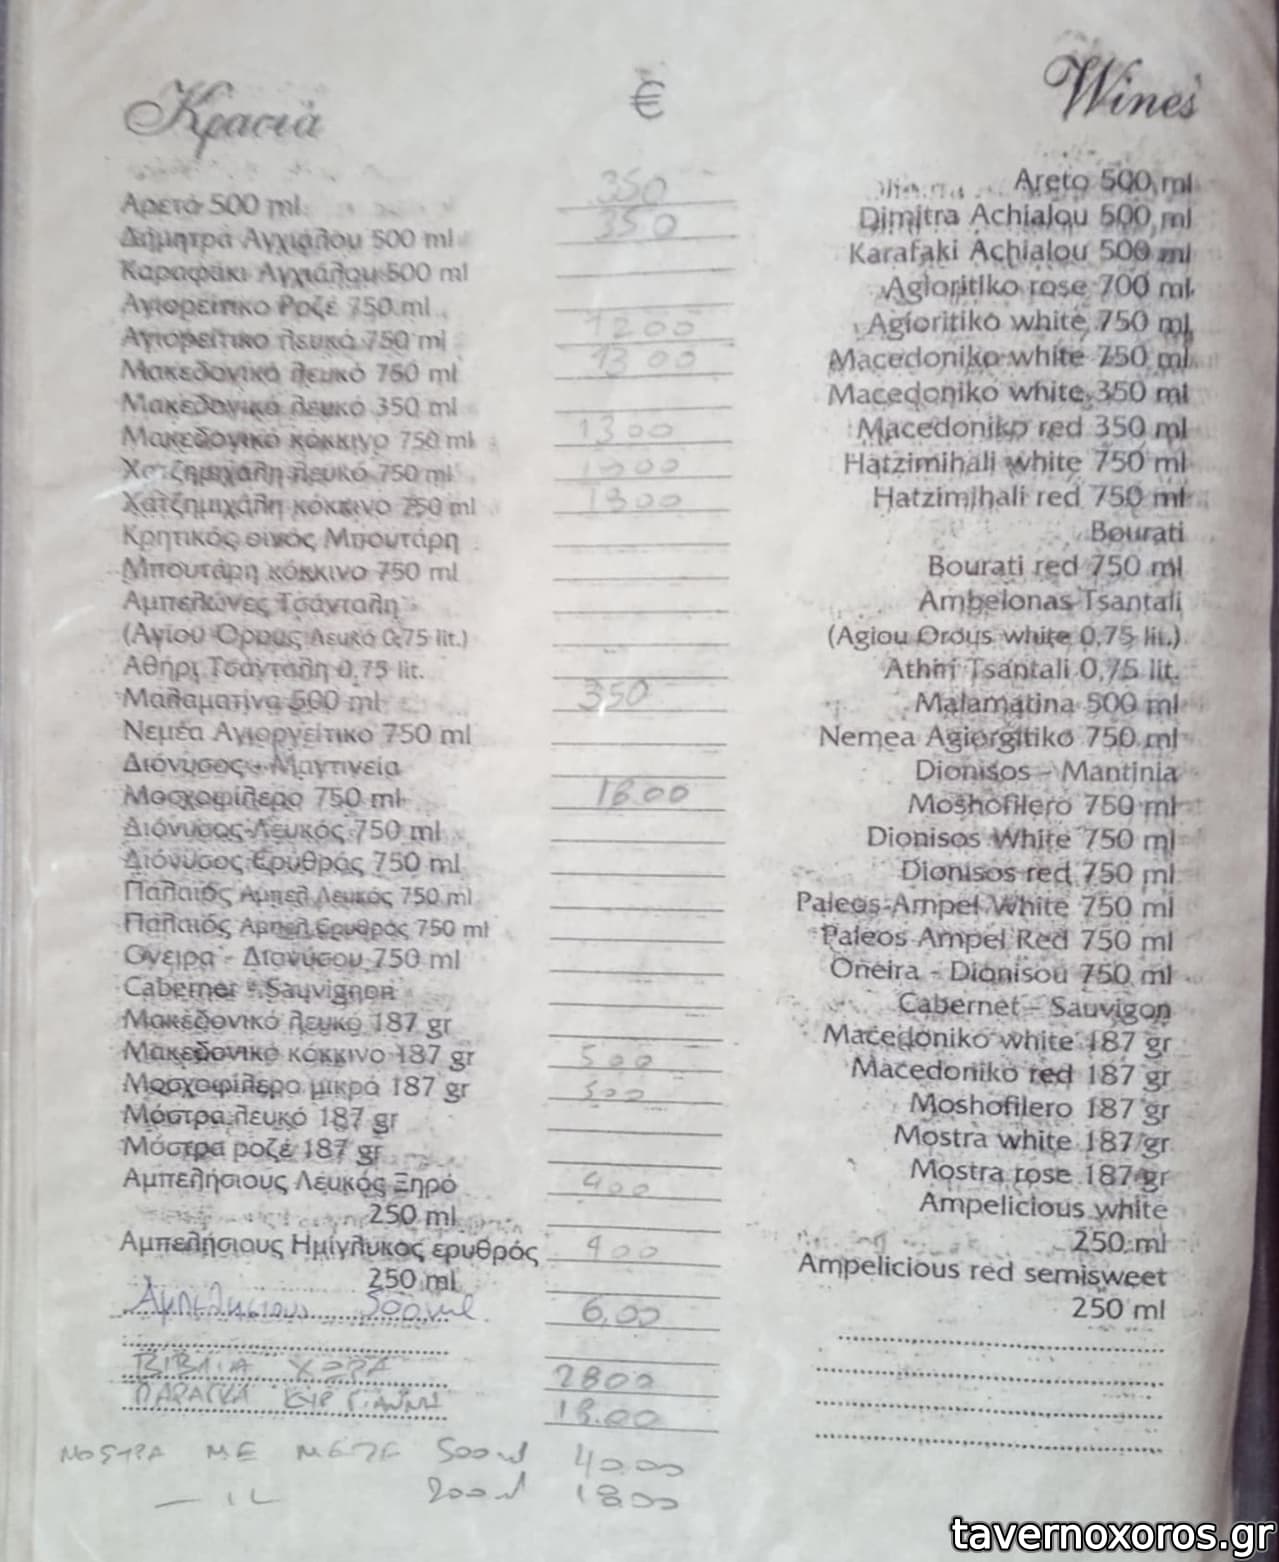 Κρασιά € Wines
Αρετό 500 ml 350 Areto 500 ml
Δήμητρα Αγχιάλου 500 ml 350 Dimitra Achialou 500 ml
Καραφάκι Αγχιάλου 500 ml Karafaki Achialou 500 ml
Αγιορείτικο Ροζέ 750 ml Agioritiko rose 700 ml
Αγιορείτικο λευκό 750 ml 1200 Agioritiko white 750 ml
Μακεδονικό λευκό 750 ml 1300 Macedoniko white 750 ml
Μακεδονικό λευκό 350 ml Macedoniko white 350 ml
Μακεδονικό κόκκινο 750 ml 1300 Macedoniko red 350 ml
Χατζημιχάλη λευκό 750 ml Hatzimihali white 750 ml
Χατζημιχάλη κόκκινο 750 ml 1800 Hatzimihali red 750 ml
Κρητικός οίνος Μπουτάρη Bourati
Μπουτάρη κόκκινο 750 ml Bourati red 750 ml
Αμπελώνες Τσάνταλη Ambelonas Tsantali
(Αγίου Όρους Λευκό 0,75 lit.) (Agiou Orous white 0,75 lit.)
Αθήρι Τσάνταλη 0,75 lit. Athiri Tsantali 0,75 lit.
Μαλαματίνα 500 ml 350 Malamatina 500 ml
Νεμέα Αγιοργείτικο 750 ml Nemea Agiorgitiko 750 ml
Διόνυσος - Μαντινεία Dionisos - Mantinia
Μοσχοφίλερο 750 ml 18.00 Moshofilero 750 ml
Διόνυσος Λευκός 750 ml Dionisos White 750 ml
Διόνυσος Ερυθρός 750 ml Dionisos red 750 ml
Παλαιός Αμπελ Λευκός 750 ml Paleos Ampel White 750 ml
Παλαιός Αμπελ Ερυθρός 750 ml Paleos Ampel Red 750 ml
Όνειρα - Διονύσου 750 ml Oneira - Dionisou 750 ml
Cabernet - Sauvignon Cabernet - Sauvigon
Μακεδονικό λευκό 187 gr Macedoniko white 187 gr
Μακεδονικό κόκκινο 187 gr 500 Macedoniko red 187 gr
Μοσχοφίλερο μικρό 187 gr 500 Moshofilero 187 gr
Μόστρα λευκό 187 gr Mostra white 187 gr
Μόστρα ροζέ 187 gr Mostra rose 187 gr
Αμπελήσιους Λευκός Ξηρό 400 Ampelicious white
250 ml 250 ml
Αμπελήσιους Ημίγλυκος ερυθρός 400 Ampelicious red semisweet
250 ml 250 ml
Αμπελησιους 500ml 6,00
ΒΙΒΛΙΑ ΧΩΡΑ 2800
ΠΑΡΑΓΚΑ ΚΥΡ ΓΙΑΝΝΗ 18.00
ΜΟΣΤΡΑ ΜΕ ΜΕΖΕ 500 ml 40.00
200 ml 18.00
tavernoxoros.gr